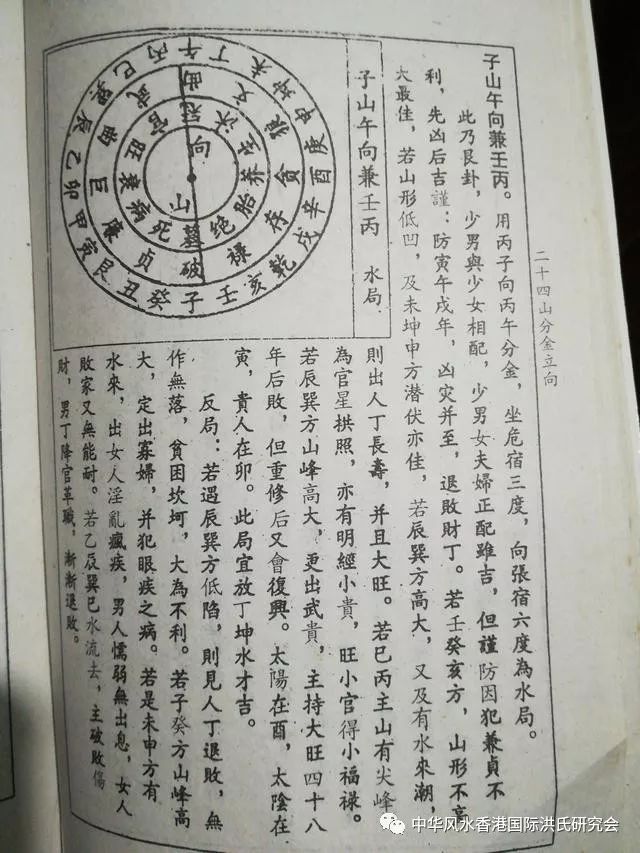 二十四山分金立向
子山午向兼壬丙。用丙子向丙午分金,坐危宿三度,向張宿六度為水局。
此乃艮卦,少男與少女相配,少男女夫婦正配雖吉,但謹防因犯兼貞不
利,先凶后吉謹:防寅午戌年,凶灾并至,退敗財丁。若壬癸亥方,山形不高
大最佳,若山形低凹,及未坤申方潜伏亦佳,若辰巽方高大,又及有水來潮,
子山午向兼壬丙 水局
午丁未坤申庚酉辛戌乾亥壬子癸丑艮寅甲卯乙辰巽巳丙
曲文狼貪存禄破貞廉巨曲武
冠沐生養胎绝墓死病衰旺官
向
山
則出人丁長壽,并且大旺。若巳丙主山有尖峰
為官星拱照,亦有明經小貴,旺小官得小福禄。
若辰巽方山峰高大,更出武貴,主持大旺四十八
年后敗,但重修后又會復興。太陽在酉,太陰在
寅,貴人在卯。此局宜放丁坤水才吉。
反局:若遇辰巽方低陷,則見人丁退敗,無
作無落,貧困坎坷,大為不利。若子癸方山峰高
大,定出寡婦,并犯眼疾之病。若是未申方有
水來,出女人淫亂瘋疾,男人懦弱無出息,女人
敗家又無能耐。若乙辰巽巳水流去,主破敗傷
財,男丁降官革職,漸漸退敗。
中华风水香港国际洪氏研究会